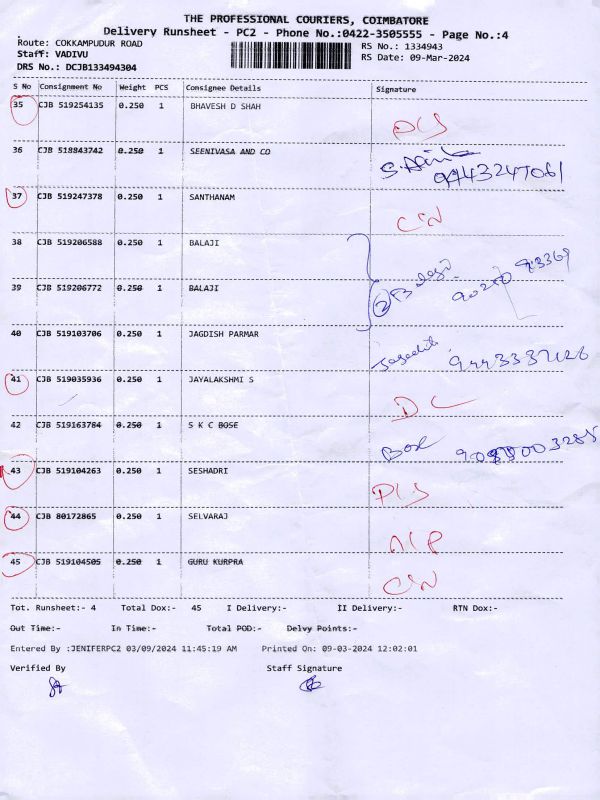 THE PROFESSIONAL COURIERS, COIMBATORE
Delivery Runsheet - PC2 - Phone No.:0422-3505555 - Page No.:4
Route: COKKAMPUDUR ROAD RS No.: 1334943
Staff: VADIVU RS Date: 09-Mar-2024
DRS No.: DCJB133494304
S No Consignment No Weight PCS Consignee Details Signature
35 CJB 519254135 0.250 1 BHAVESH D SHAH
36 CJB 518843742 0.250 1 SEENIVASA AND CO
9443247061
37 CJB 519247378 0.250 1 SANTHANAM
38 CJB 519206588 0.250 1 BALAJI
2 Balaji
39 CJB 519206772 0.250 1 BALAJI
40 CJB 519103706 0.250 1 JAGDISH PARMAR
41 CJB 519035936 0.250 1 JAYALAKSHMI S
DC
42 CJB 519163784 0.250 1 S K C BOSE
43 CJB 519104263 0.250 1 SESHADRI
44 CJB 80172865 0.250 1 SELVARAJ
45 CJB 519104505 0.250 1 GURU KURPRA
Tot. Runsheet:- 4 Total Dox:- 45 I Delivery:- II Delivery:- RTN Dox:-
Out Time:- In Time:- Total POD:- Delvy Points:-
Entered By :JENIFERPC2 03/09/2024 11:45:19 AM Printed On: 09-03-2024 12:02:01
Verified By Staff Signature